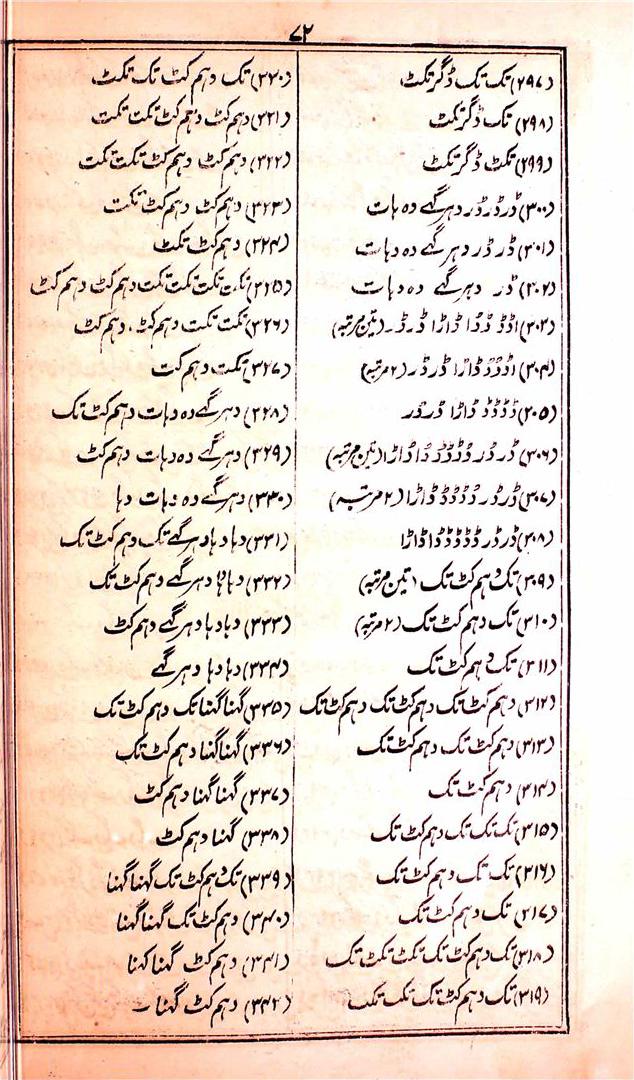 ۷۲
(۲۹۷) تک تک ڈگر تکٹ
(۲۹۸) تک ڈگر تکٹ
(۲۹۹) تکٹ ڈگر تکٹ
(۳۰۰) ڈر ڈر ڈر دہر گہے دہ ہات
(۳۰۱) ڈر ڈر دہر گہے دہ دہات
(۳۰۲) ڈر دہر گہے دہ دہات
(۳۰۳) ڈاڑا ڈر ڈر۔ (تین مرتبہ)
(۳۰۴) ڈاڑا ڈر ڈر (۲ مرتبہ)
(۳۰۵) ڈڈڈڈ ڈاڑا ڈر ڈر
(۳۰۶) ڈر ڈر ڈاڑا (تین مرتبہ)
(۳۰۷) ڈر ڈر ڈاڑا (۲ مرتبہ)
(۳۰۸) ڈر ڈر ڈاڑا
(۳۰۹) تک دہم کٹ تک (تین مرتبہ)
(۳۱۰) تک دہم کٹ تک (۲ مرتبہ)
(۳۱۱) تک دہم کٹ تک
(۳۱۲) دہم کٹ تک دہم کٹ تک دہم کٹ تک
(۳۱۳) دہم کٹ تک دہم کٹ تک
(۳۱۴) دہم کٹ تک
(۳۱۵) تک تک تک دہم کٹ تک
(۳۱۶) تک تک دہم کٹ تک
(۳۱۷) تک دہم کٹ تک
(۳۱۸) تک دہم کٹ تک تکٹ تکٹ تک
(۳۱۹) تک دہم کٹ تک تک تکٹ
(۳۲۰) تک دہم کٹ تک تکٹ
(۳۲۱) دہم کٹ دہم کٹ تکت تکت
(۳۲۲) دہم کٹ دہم کٹ تکت تکت
(۳۲۳) دہم کٹ دہم کٹ تکت
(۳۲۴) دہم کٹ تکٹ
(۳۲۵) تکت تکت تکت تکت دہم کٹ دہم کٹ
(۳۲۶) تکت تکت دہم کٹ، دہم کٹ
(۳۲۷) تکت دہم کت
(۳۲۸) دہر گہے دہ دہات دہم کٹ تک
(۳۲۹) دہر گہے دہ دہات دہم کٹ
(۳۳۰) دہر گہے دہ دہات دہا
(۳۳۱) دہا دہا دہر گہے تک دہم کٹ تک
(۳۳۲) دہا دہا دہر گہے دہم کٹ تک
(۳۳۳) دہا دہا دہر گہے دہم کٹ
(۳۳۴) دہا دہا دہر گہے
(۳۳۵) گہنا گہنا تک دہم کٹ تک
(۳۳۶) گہنا گہنا دہم کٹ تک
(۳۳۷) گہنا گہنا دہم کٹ
(۳۳۸) گہنا دہم کٹ
(۳۳۹) تک دہم کٹ تک گہنا گہنا
(۳۴۰) دہم کٹ تک گہنا گہنا
(۳۴۱) دہم کٹ گہنا گہنا
(۳۴۲) دہم کٹ گہنا ۔